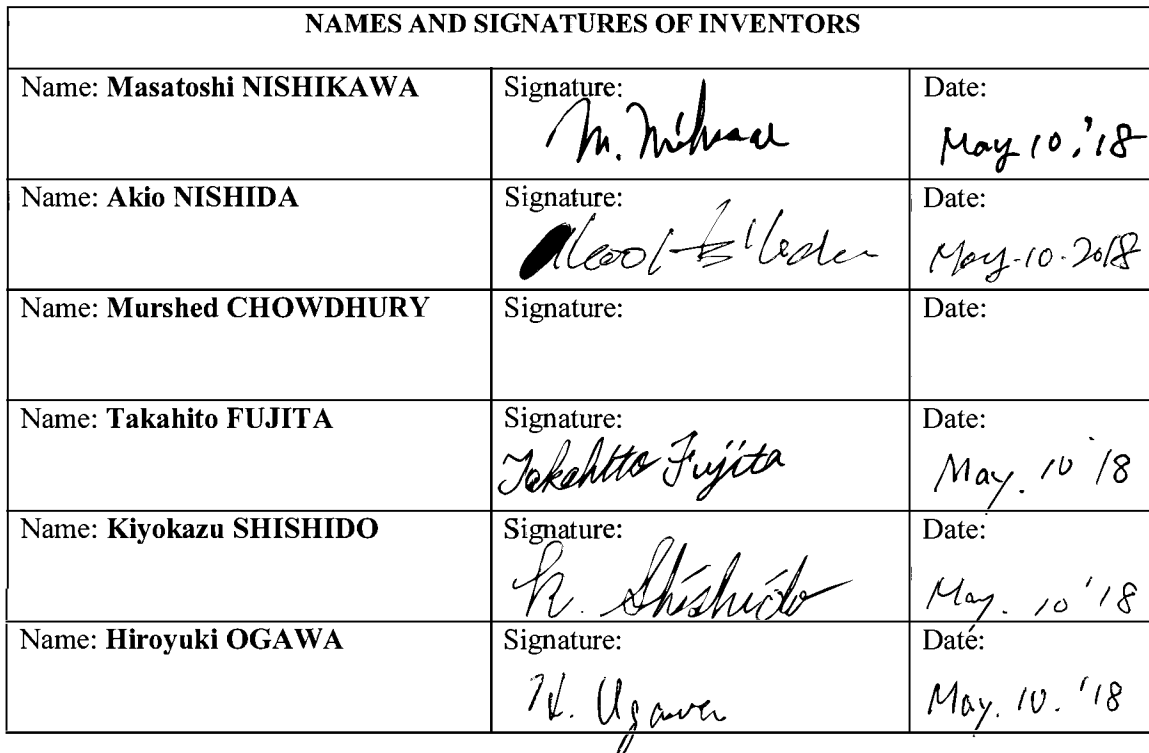 NAMES AND SIGNATURES OF INVENTORS
Name: Masatoshi NISHIKAWA
Signature:
M.
Date:
May 10, '18
Name: Akio NISHIDA
Signature:
Date:
May-10-2018
Name: Murshed CHOWDHURY
Signature:
Date:
Name: Takahito FUJITA
Signature:
Takahito Fujita
Date:
May. 10 '18
Name: Kiyokazu SHISHIDO
Signature:
K. Shishido
Date:
May. 10 '18
Name: Hiroyuki OGAWA
Signature:
H. Ogawa
Date:
May. 10. '18